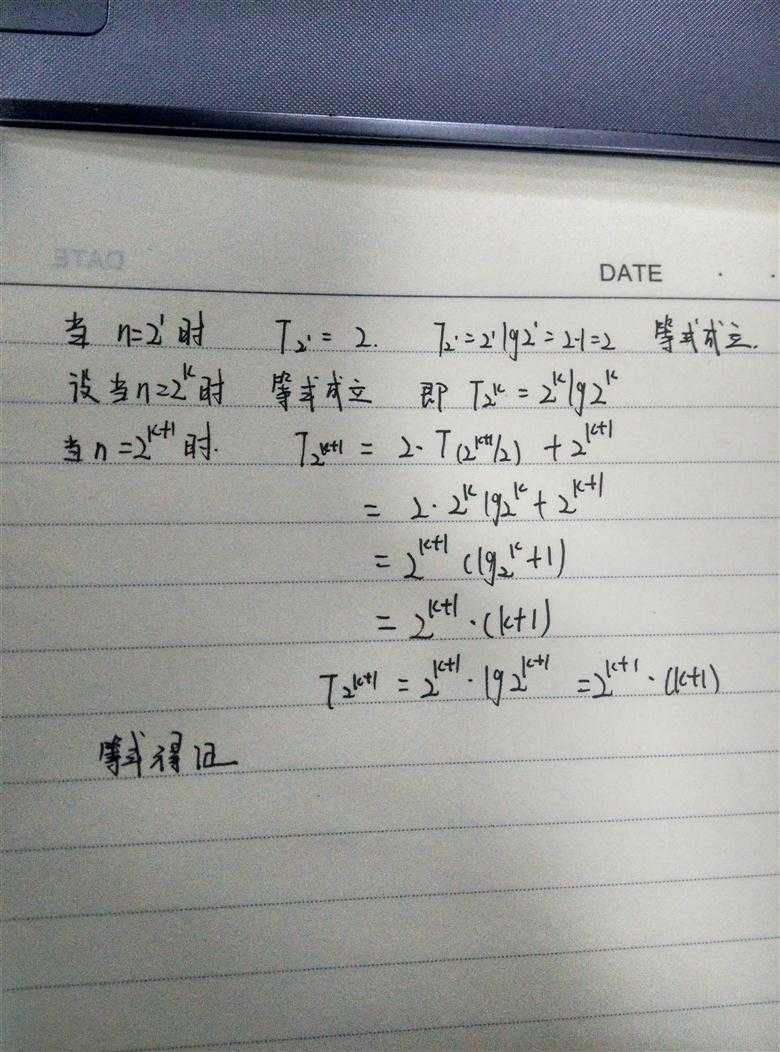 DATE
当 n=2¹时 T₂¹ = 2. T₂¹=2¹lg2¹=2·1=2 等式成立.
设当n=2ᵏ时 等式成立 即 T₂ᵏ = 2ᵏlg2ᵏ
当n=2ᵏ⁺¹时. T₂ᵏ⁺¹ = 2·T(2ᵏ⁺¹/2) + 2ᵏ⁺¹
= 2·2ᵏlg2ᵏ+2ᵏ⁺¹
= 2ᵏ⁺¹(lg2ᵏ+1)
= 2ᵏ⁺¹·(k+1)
T₂ᵏ⁺¹ = 2ᵏ⁺¹·lg2ᵏ⁺¹ =2ᵏ⁺¹·(k+1)
等式得证